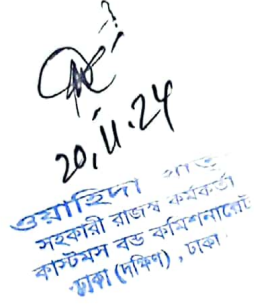 20.11.24
ওয়াহিদা
সহকারী রাজস্ব কর্মকর্তা
কাস্টমস বন্ড কমিশনারেট
ঢাকা (দক্ষিণ), ঢাকা